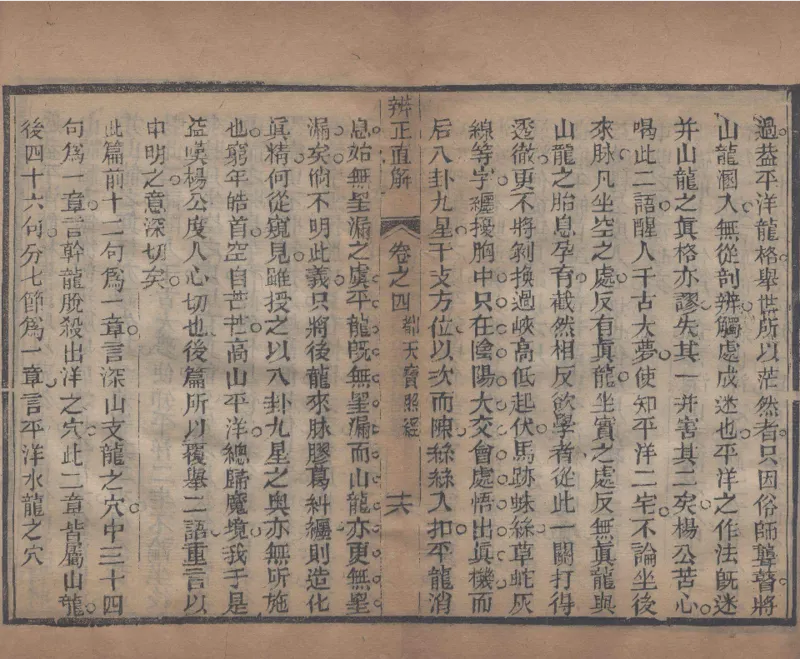 過葢平洋龍格舉世所以茫然者只因俗師聾瞽將
山龍溷入無從剖辨觸處成迷也平洋之作法旣迷
并山龍之眞格亦謬失其一并害其二矣楊公苦心
喝此二語醒人千古大夢使知平洋二宅不論坐後
來脉凡坐空之處反有眞龍坐實之處反無眞龍與
山龍之胎息孕育截然相反欲學者從此一關打得
透徹更不將剝換過峽高低起伏馬跡蛛絲草蛇灰
線等字纒擾胸中只在陰陽大交會處悟出眞機而
后八卦九星干支方位以次而陳絲絲入扣平龍消
辨正直解 卷之四 都天寶照經 十六
息始無罣漏之虞平龍旣無罣漏而山龍亦更無罣
漏矣倘不明此義只將後龍來脉膠葛糾纒則造化
眞精何從窺見雖授之以八卦九星之奥亦無所施
也窮年皓首空自芒芒高山平洋總歸魔境我于是
益嘆楊公度人心切也後篇所以覆舉二語重言以
申明之意深切矣
此篇前十二句爲一章言深山支龍之穴中三十四
句爲一章言幹龍脫殺出洋之穴此二章皆屬山龍
後四十六句分七節爲一章言平洋水龍之穴